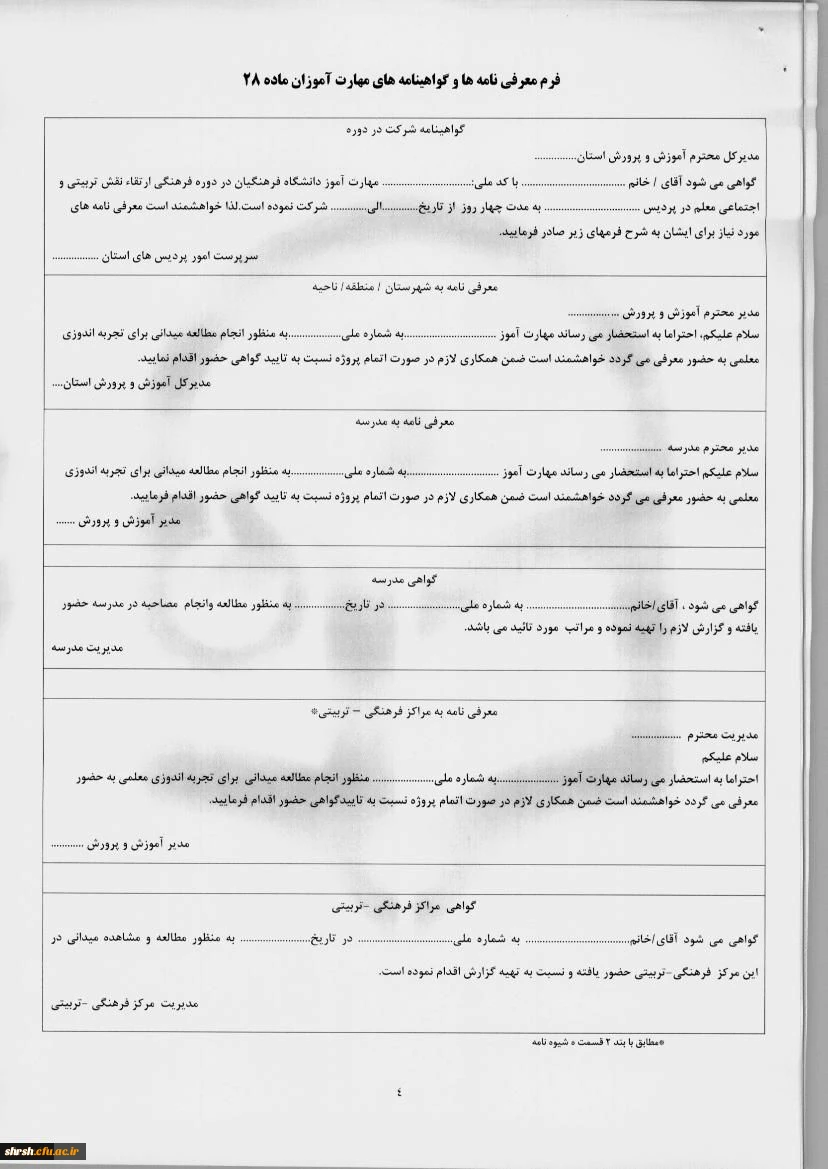 فرم معرفی نامه ها و گواهینامه های مهارت آموزان ماده ۲۸
گواهینامه شرکت در دوره
مدیرکل محترم آموزش و پرورش استان...............
گواهی می شود آقای / خانم ..................................... با کد ملی:................................ مهارت آموز دانشگاه فرهنگیان در دوره فرهنگی ارتقاء نقش تربیتی و
اجتماعی معلم در پردیس .................................. به مدت چهار روز از تاریخ.............الی............. شرکت نموده است.لذا خواهشمند است معرفی نامه های
مورد نیاز برای ایشان به شرح فرمهای زیر صادر فرمایید.
سرپرست امور پردیس های استان .................
معرفی نامه به شهرستان / منطقه/ ناحیه
مدیر محترم آموزش و پرورش ..................
سلام علیکم، احتراما به استحضار می رساند مهارت آموز .................................به شماره ملی...................به منظور انجام مطالعه میدانی برای تجربه اندوزی
معلمی به حضور معرفی می گردد خواهشمند است ضمن همکاری لازم در صورت اتمام پروژه نسبت به تایید گواهی حضور اقدام نمایید.
مدیرکل آموزش و پرورش استان....
معرفی نامه به مدرسه
مدیر محترم مدرسه ......................
سلام علیکم احتراما به استحضار می رساند مهارت آموز .................................به شماره ملی...................به منظور انجام مطالعه میدانی برای تجربه اندوزی
معلمی به حضور معرفی می گردد خواهشمند است ضمن همکاری لازم در صورت اتمام پروژه نسبت به تایید گواهی حضور اقدام فرمایید.
مدیر آموزش و پرورش .......
گواهی مدرسه
گواهی می شود ، آقای/خانم..................................... به شماره ملی.......................... در تاریخ.................. به منظور مطالعه وانجام مصاحبه در مدرسه حضور
یافته و گزارش لازم را تهیه نموده و مراتب مورد تائید می باشد.
مدیریت مدرسه
معرفی نامه به مراکز فرهنگی – تربیتی*
مدیریت محترم ..................
سلام علیکم
احتراما به استحضار می رساند مهارت آموز ......................به شماره ملی...................... منظور انجام مطالعه میدانی برای تجربه اندوزی معلمی به حضور
معرفی می گردد خواهشمند است ضمن همکاری لازم در صورت اتمام پروژه نسبت به تاییدگواهی حضور اقدام فرمایید.
مدیر آموزش و پرورش ............
گواهی مراکز فرهنگی -تربیتی
گواهی می شود آقای/خانم..................................... به شماره ملی.................................. در تاریخ......................... به منظور مطالعه و مشاهده میدانی در
این مرکز فرهنگی-تربیتی حضور یافته و نسبت به تهیه گزارش اقدام نموده است.
مدیریت مرکز فرهنگی -تربیتی
*مطابق با بند ۲ قسمت ه شیوه نامه
٤
shrsh.cfu.ac.ir